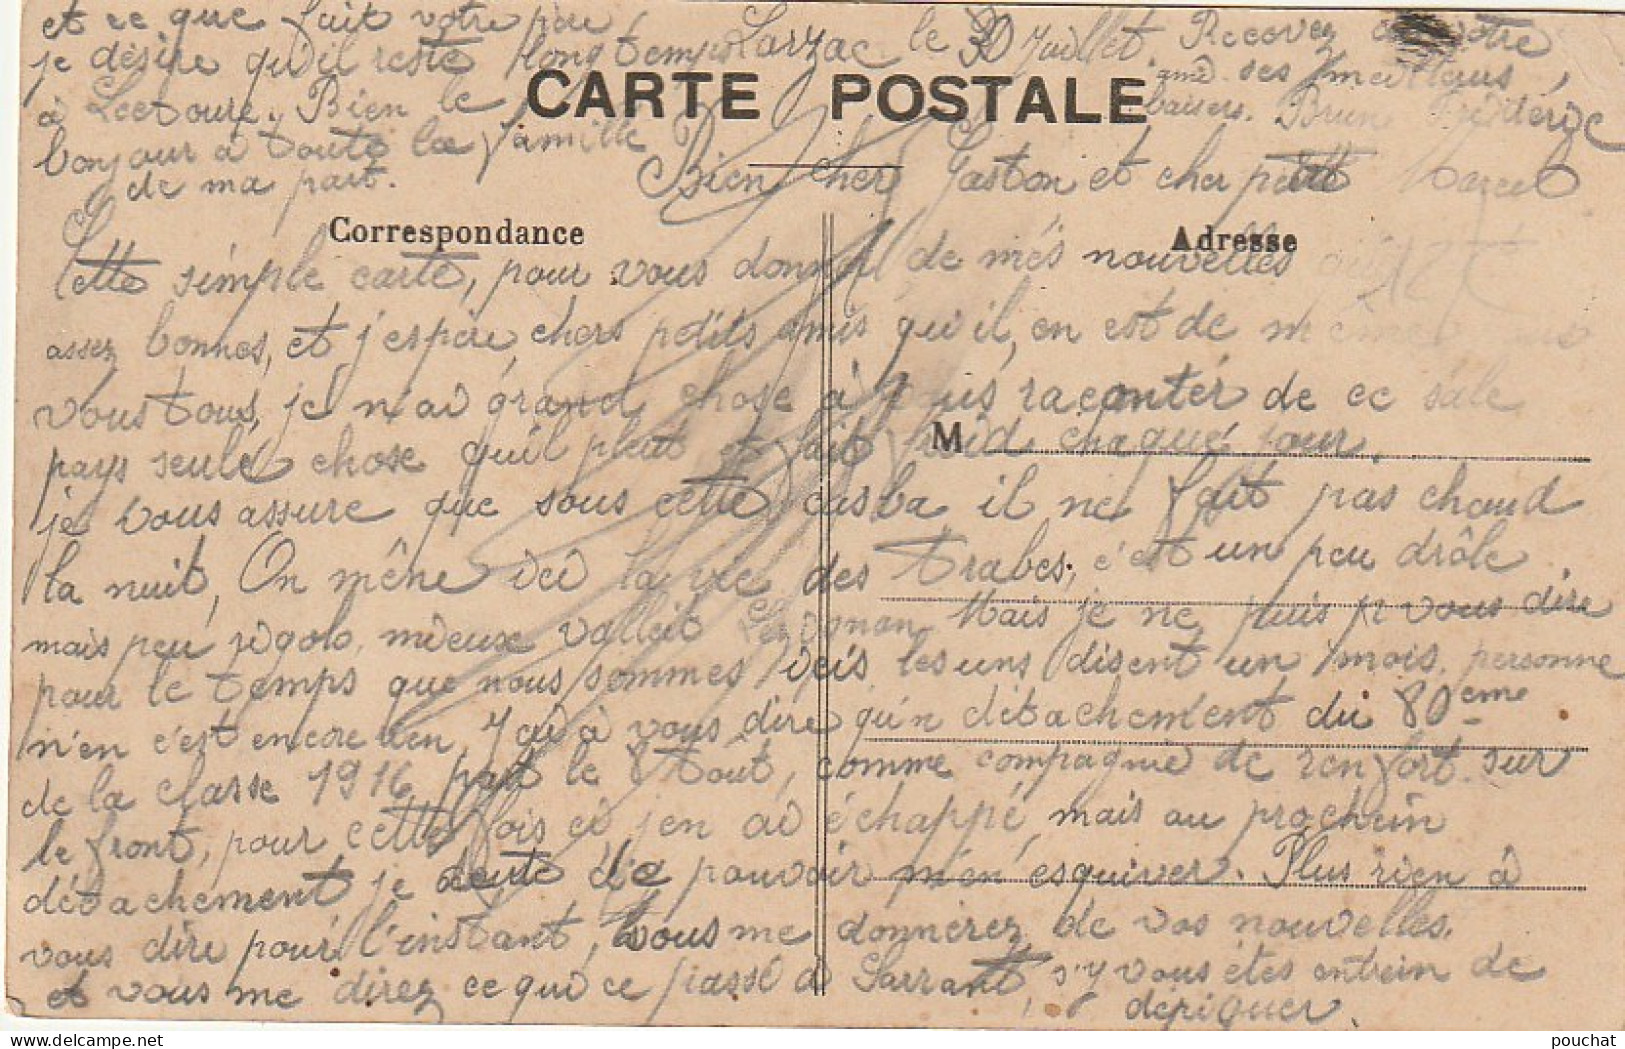 et ce que fait votre père
je désire qu'il reste longtemps
à Lectoure. Bien le
bonjour à toute la famille
de ma part.
Larzac le 30 Juillet. Recevez de votre
ami ses meilleurs
baisers. Bruno Frédéric
CARTE POSTALE
Bien cher Gaston et cher petit Marcel
Correspondance
Adresse
Cette simple carte, pour vous donner de més nouvelles qui
assez bonnes, et j'espère, chers petits amis qu'il, en est de même
vous tous, je n'ai grand chose à vous raconter de ce sale
pays seule chose qu'il pleut et fait froid chaque jour.
M
je vous assure que sous cette casba il ne fait pas chaud
la nuit, On mène ici la vie des Arabes, c'est un peu drôle
mais peu rigolo, mieux vallait Lézignan. Mais je ne puis vous dire
pour le temps que nous sommes icis, les uns disent un mois, personne
n'en c'est encore rien, J'ai à vous dire qu'n détachement du 80ème
de la classe 1916 part le 8 Tout, comme compagnie de renfort sur
le front, pour cette fois ci j'en ai échappé, mais au prochain
détachement je doute de pouvoir m'en esquiver. Plus rien à
vous dire pour l'instant, Vous me donnerez de vos nouvelles.
et vous me direz ce qui ce passe à Sarrant, s'y vous êtes entrein de
dépiquer.
pouchat